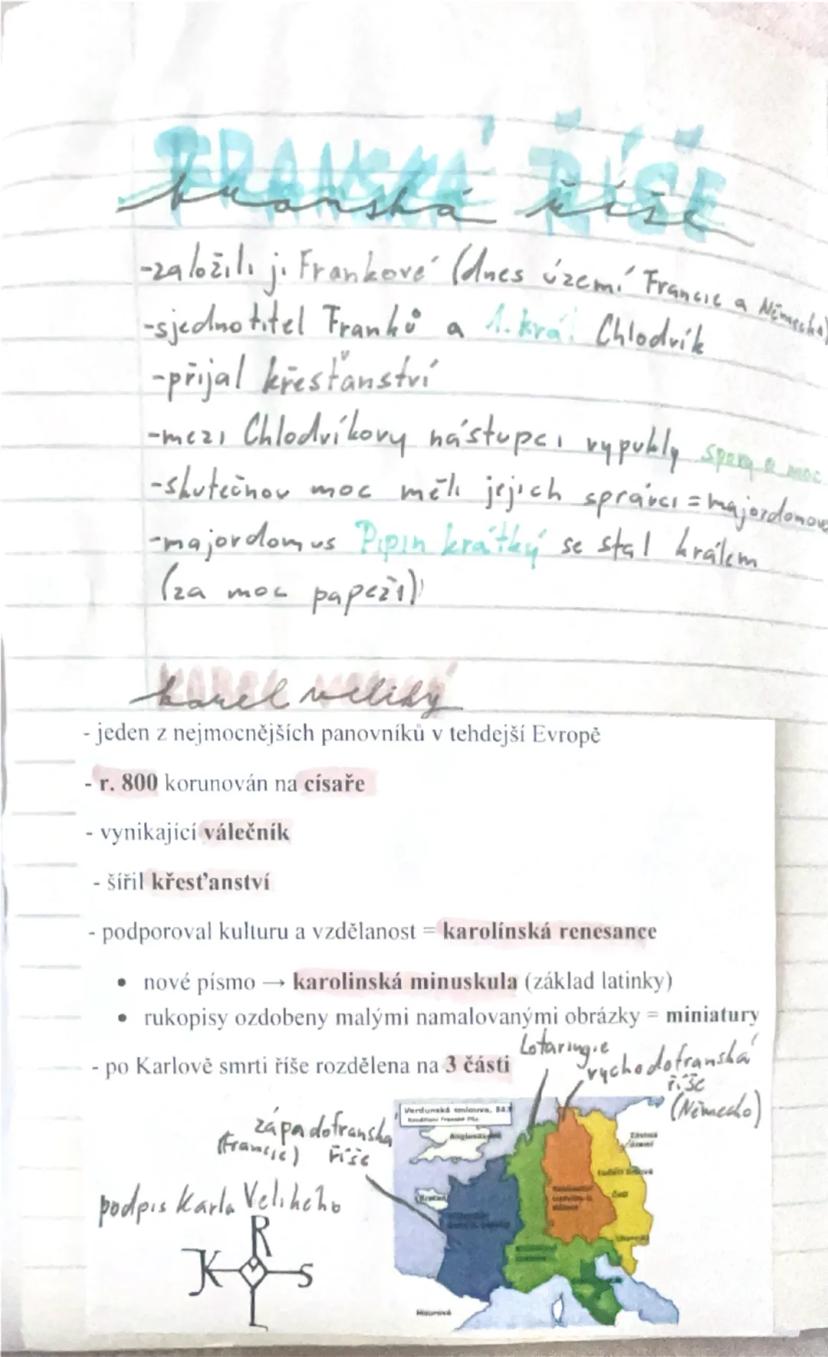 FRANSKÁ ŘÍŠE
franská říše
-založili ji Frankové (dnes území Francie a Německa)
-sjednotitel Franků a 1. král Chlodvík
-přijal křesťanství
-mezi Chlodvíkovy nástupci vypukly spory o moc
-skutečnou moc měli jejich správci = majordomové
-majordomus Pipin krátký se stal králem
(za moc papeži)
KAREL VELIKÝ
karel veliký
- jeden z nejmocnějších panovníků v tehdejší Evropě
- r. 800 korunován na císaře
- vynikající válečník
- šířil křesťanství
- podporoval kulturu a vzdělanost = karolínská renesance
• nové písmo → karolinská minuskula (základ latinky)
• rukopisy ozdobeny malými namalovanými obrázky = miniatury
- po Karlově smrti říše rozdělena na 3 části
Lotaringie
východofranská
říše
(Německo)
západofranská
(Francie) říše
Verdunská smlouva, 843
podpis Karla Velikého
R
K S
L